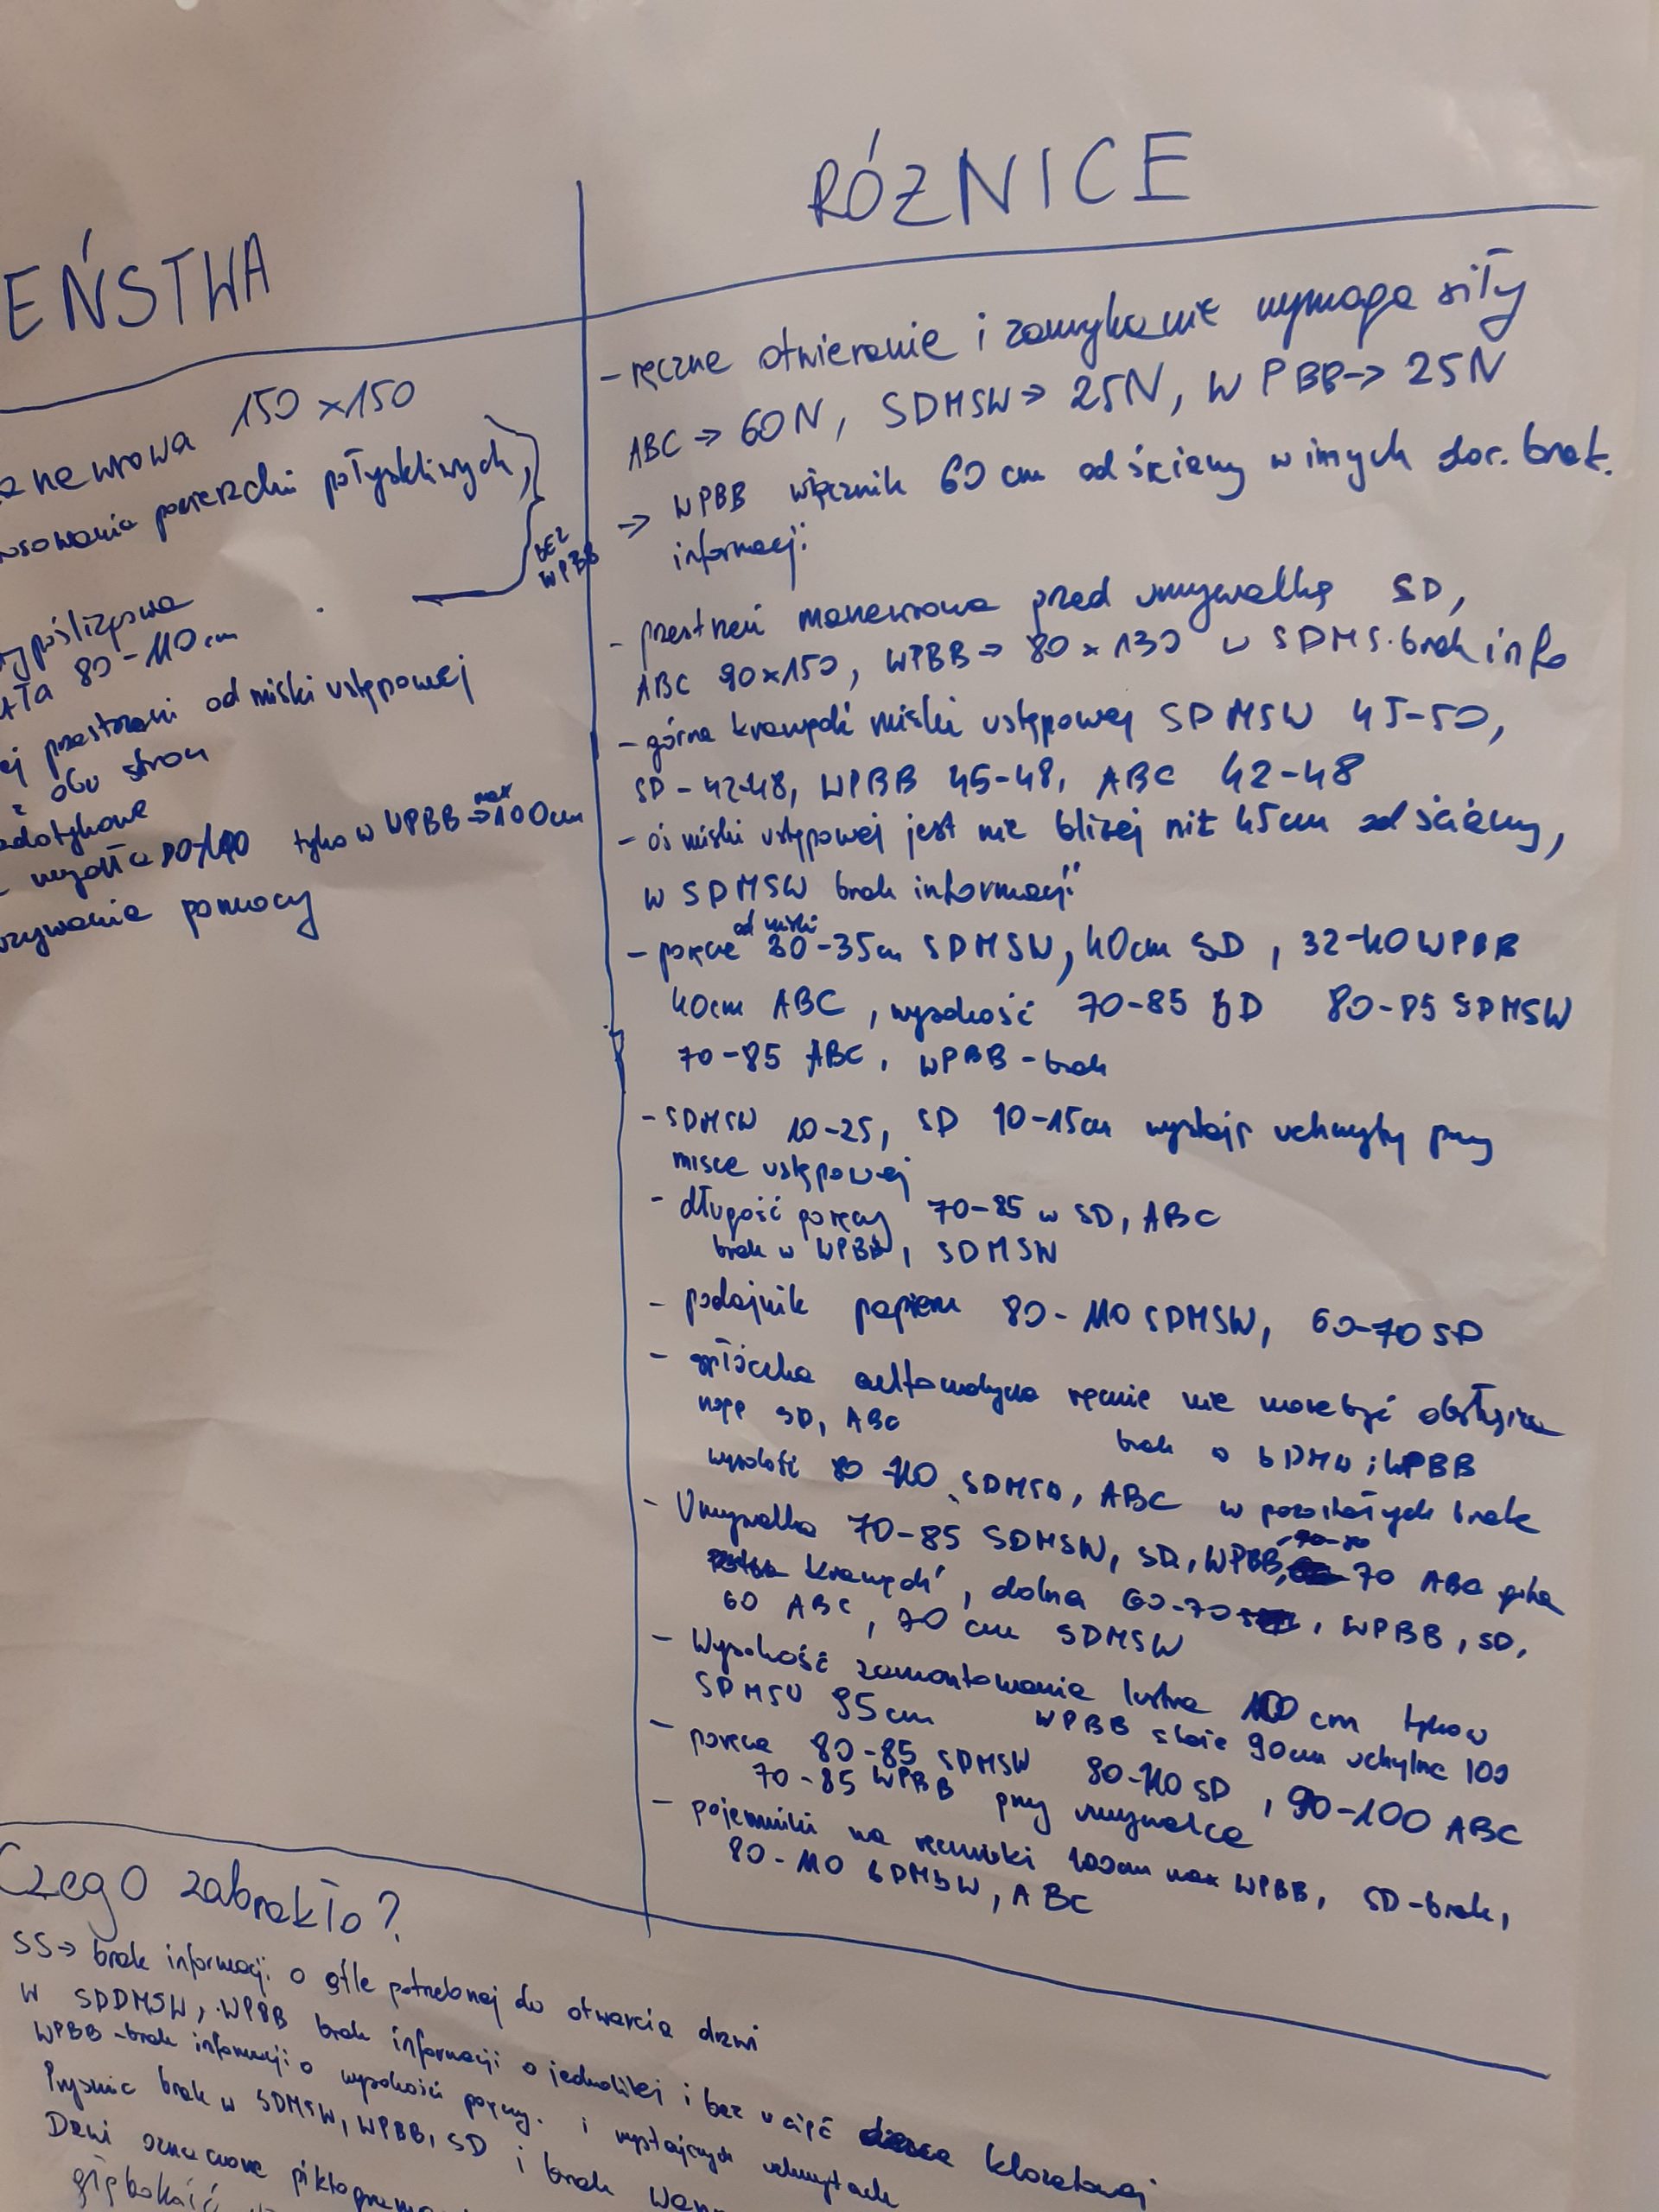 EŃSTWA
newrowa 150 x150
sowania powierzchni połyskliwych,
BEZ
WPBB
typoślizgowa
80-110 cm
ej przestrzeni od miski ustępowej
z obu stron
adotykowe
mydła 80/110 tylko w WPBB → max 100cm
zywania pomocy
RÓŻNICE
- ręczne otwieranie i zamykanie wymaga siły
ABC → 60N, SDMSW → 25N, WPBB → 25N
→ WPBB włącznik 60 cm od ściany w innych dor. brak.
informacji
- przestrzeń manewrowa przed umywalką SD,
ABC 90x150, WPBB → 80 x 130 w SDMS. brak info
- górna krawędź miski ustępowej SDMSW 45-50,
SD - 42-48, WPBB 45-48, ABC 42-48
- oś miski ustępowej jest nie bliżej niż 45cm od ściany,
w SDMSW brak informacji
- poręcze od miski 30-35cm SDMSW, 40cm SD, 32-40 WPBB
40cm ABC, wysokość 70-85 SD 80-85 SDMSW
70-85 ABC, WPBB - brak
- SDMSW 10-25, SD 10-15cm wystają uchwyty przy
misce ustępowej
- długość poręczy 70-85 w SD, ABC
brak w WPBB, SDMSW
- podajnik papieru 80-110 SDMSW, 60-70 SD
- spłóczka automatyczna ręcznie nie może być
SD, ABC brak w SDMW i WPBB
wysokość 80-110 SDMSW, ABC w pozostałych brak
- Umywalka 70-85 SDMSW, SD, WPBB, 70 ABC górna
krawędź, dolna 60-70, WPBB, SD,
60 ABC, 70 cm SDMSW
- Wysokość zamontowania lustra 100 cm tylko w
SDMSW 95cm WPBB stałe 90cm uchylne 100
- poręcze 80-85 SDMSW 80-110 SD, 90-100 ABC
70-85 WPBB przy umywalce
- pojemniki na ręczniki 100cm max WPBB, SD-brak,
80-110 SDMSW, ABC
Czego zabrakło?
SS → brak informacji o sile potrzebnej do otwarcia drzwi
W SDDMSW, WPBB brak informacji o jednolitej i bez wcięć desce klozetowej
WPBB - brak informacji o wysokości poręczy. i wystających uchwytach
Prysznic brak w SDMSW, WPBB, SD i brak
Drzwi oznaczone
głębokość